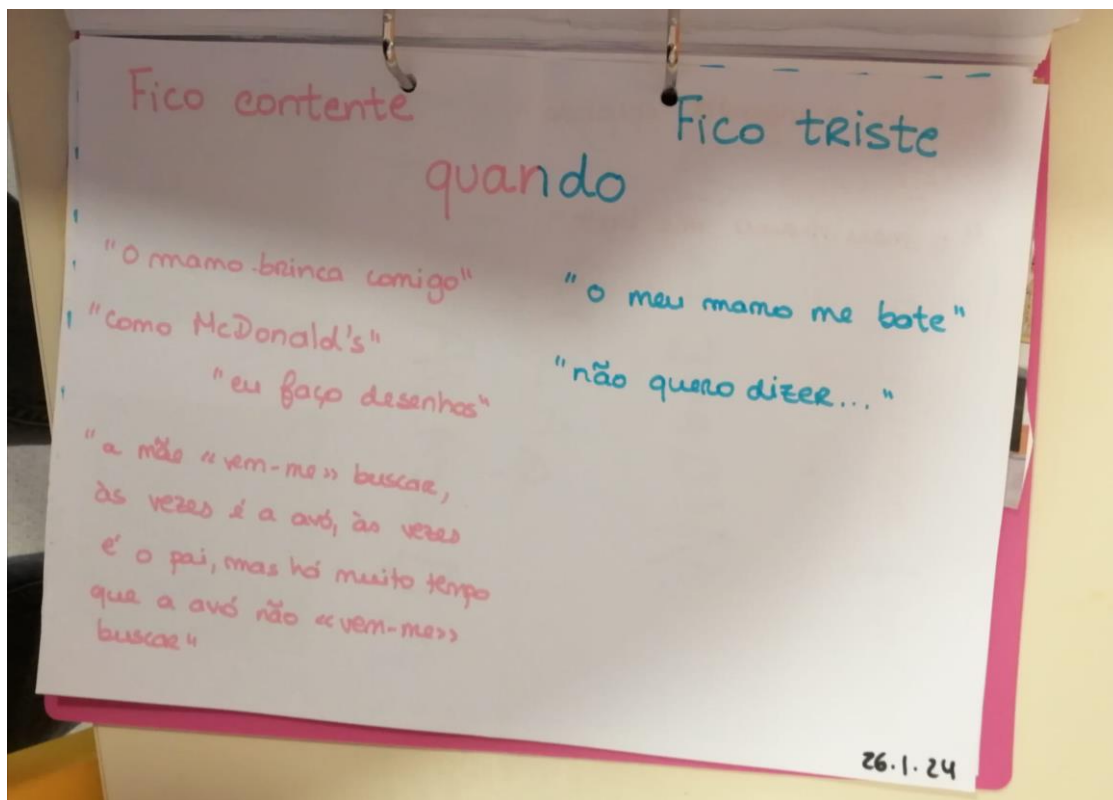 Fico contente
Fico triste
quando
"O mamo brinca comigo"
"como McDonald's"
"eu faço desenhos"
"a mãe «vem-me» buscar,
às vezes é a avó, às vezes
é o pai, mas há muito tempo
que a avó não «vem-me»
buscar"
"o meu mamo me bate"
"não quero dizer..."
26.1.24